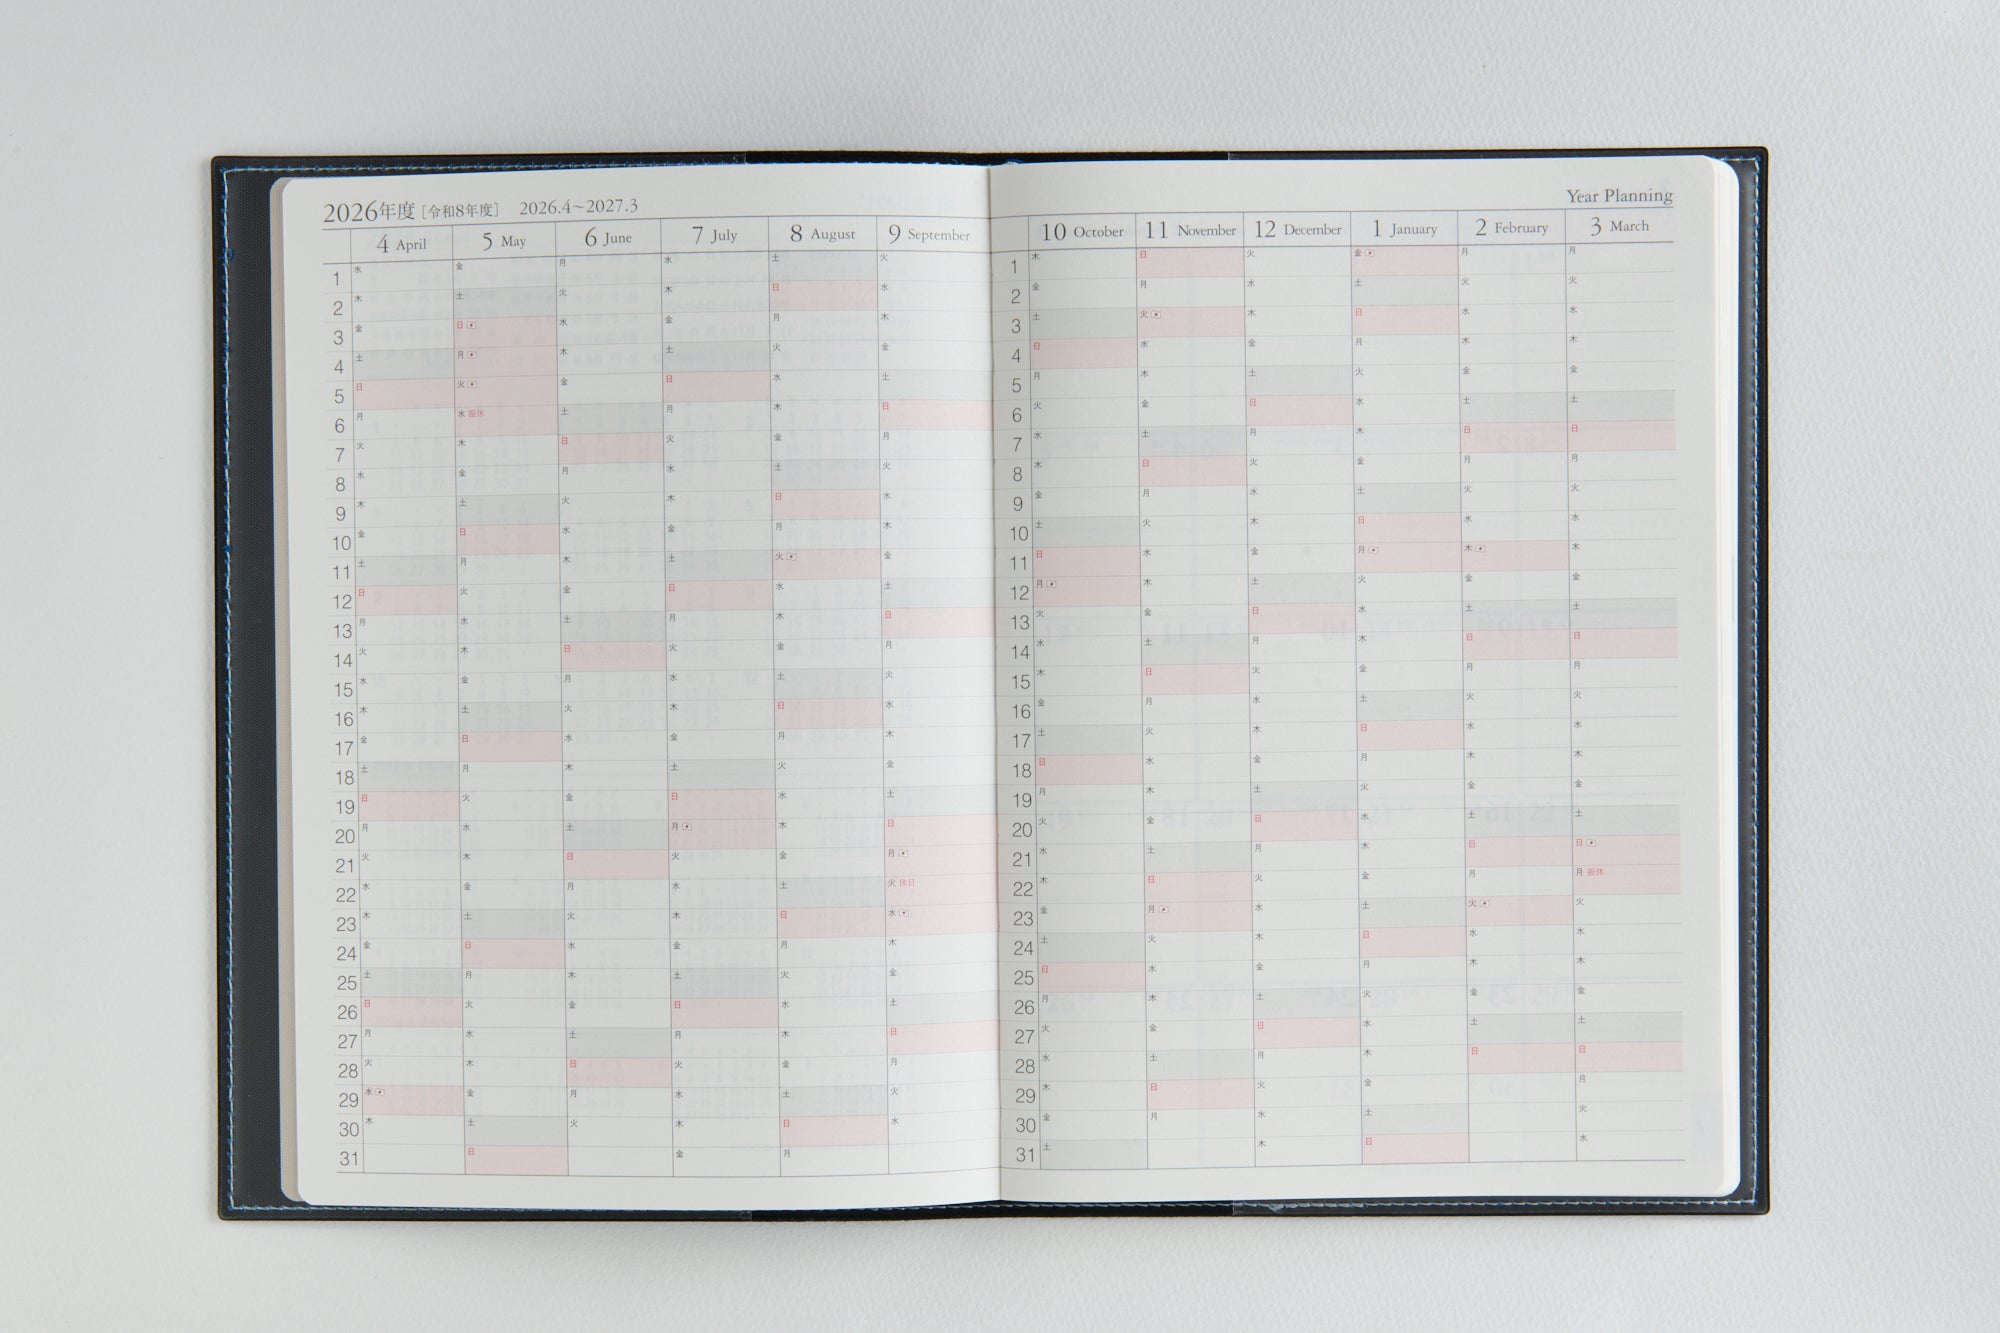 2026年度[令和8年度] 2026.4~2027.3
4 April 5 May 6 June 7 July 8 August 9 September
1 水 金 月 水 土 火
2 木 土 火 木 日 水
3 金 日 水 金 月 木
4 土 月 木 土 火 金
5 日 火 金 日 水 土
6 月 水 振休 土 月 木 日
7 火 木 日 火 金 月
8 水 金 月 水 土 火
9 木 土 火 木 日 水
10 金 日 水 金 月 木
11 土 月 木 土 火 金
12 日 火 金 日 水 土
13 月 水 土 月 木 日
14 火 木 日 火 金 月
15 水 金 月 水 土 火
16 木 土 火 木 日 水
17 金 日 水 金 月 木
18 土 月 木 土 火 金
19 日 火 金 日 水 土
20 月 水 土 月 木 日
21 火 木 日 火 金 月
22 水 金 月 水 土 火 休日
23 木 土 火 木 日 水
24 金 日 水 金 月 木
25 土 月 木 土 火 金
26 日 火 金 日 水 土
27 月 水 土 月 木 日
28 火 木 日 火 金 月
29 水 金 月 水 土 火
30 木 土 火 木 日 水
31 日 金 月
Year Planning
10 October 11 November 12 December 1 January 2 February 3 March
1 木 日 火 金 月 月
2 金 月 水 土 火 火
3 土 火 木 日 水 水
4 日 水 金 月 木 木
5 月 木 土 火 金 金
6 火 金 日 水 土 土
7 水 土 月 木 日 日
8 木 日 火 金 月 月
9 金 月 水 土 火 火
10 土 火 木 日 水 水
11 日 水 金 月 木 木
12 月 木 土 火 金 金
13 火 金 日 水 土 土
14 水 土 月 木 日 日
15 木 日 火 金 月 月
16 金 月 水 土 火 火
17 土 火 木 日 水 水
18 日 水 金 月 木 木
19 月 木 土 火 金 金
20 火 金 日 水 土 土
21 水 土 月 木 日 日
22 木 日 火 金 月 月 振休
23 金 月 水 土 火 火
24 土 火 木 日 水 水
25 日 水 金 月 木 木
26 月 木 土 火 金 金
27 火 金 日 水 土 土
28 水 土 月 木 日 日
29 木 日 火 金 月
30 金 月 水 土 火
31 土 木 日 水